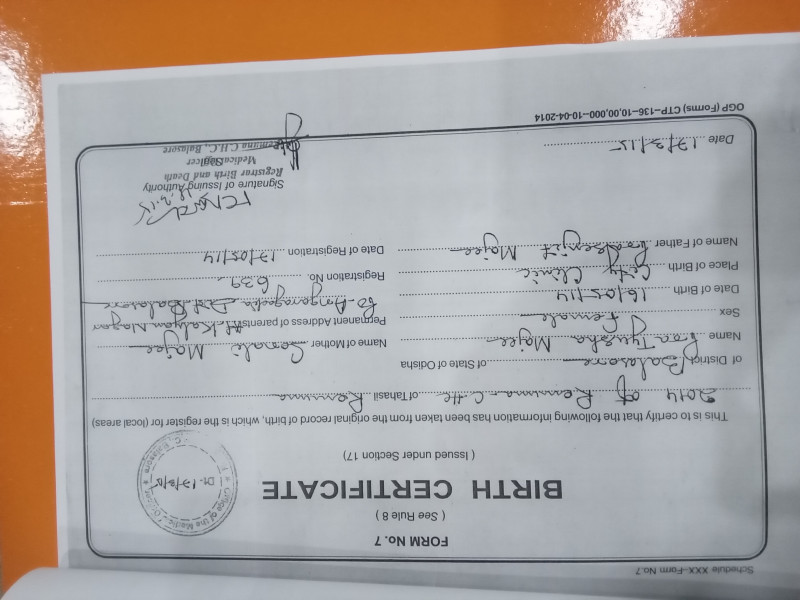 Schedule XXX-Form No.7
FORM No. 7
( See Rule 8 )
BIRTH CERTIFICATE
( Issued under Section 17)
Office of the Medical Officer
C., Balasore
Dt. 17/3/15
This is to certify that the following information has been taken from the original record of birth, which is the register for (local areas)
2014 of Remuna C.H.C of Tahasil Remuna
of District Balasore of State of Odisha
Name Majee
Name of Mother Sonali Majee
Sex Female
Permanent Address of parents At. Kalyan Nagar
Date of Birth 16/05/14
Po- Dist Balasore
Place of Birth City Clinic
Registration No. 639
Name of Father Majee
Date of Registration 17/05/14
Signature of Issuing Authority
Registrar Birth and Death
Medical Officer
Remuna C.H.C., Balasore
Date 17/3/15
OGP (Forms) CTP-136-10,00,000-10-04-2014